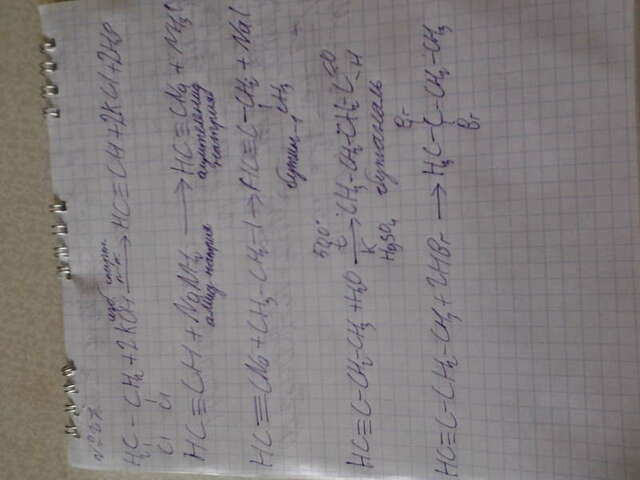 H₂C - CH₂ + 2KOH изб. спирт. р-р → HC≡CH + 2KCl + 2H₂O
Cl Cl
HC≡CH + NaNH₂ → HC≡CNa + NH₃↑
амид натрия ацетиленид натрия
HC≡CNa + CH₃-CH₂-I → HC≡C-CH₂ + NaI
CH₃
бутин-1
500°
HC≡C-CH₂-CH₃ + H₂O → CH₃-CH₂-CH₂-C=O
t H
K бутаналь
HgSO₄
Br
HC≡C-CH₂-CH₃ + 2HBr → H₃C-C-CH₂-CH₃
Br